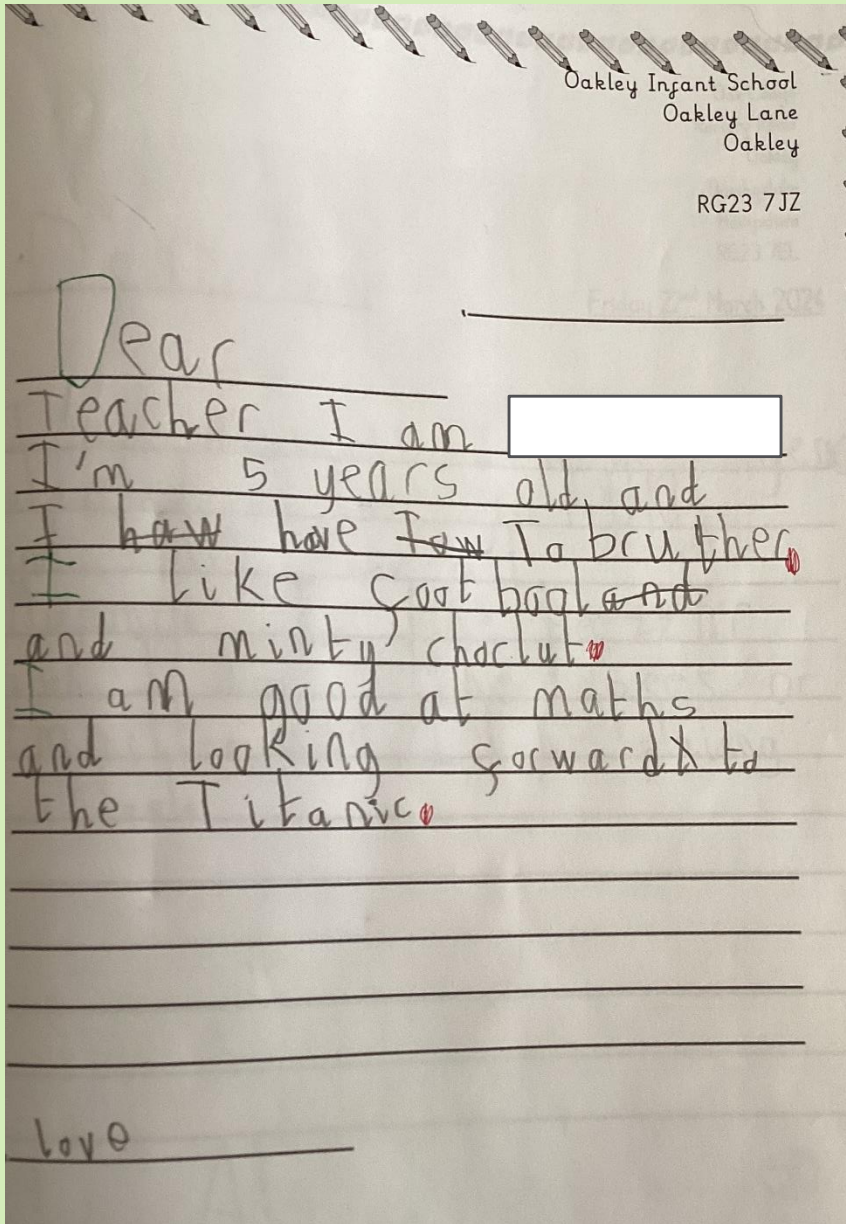 Oakley Infant School
Oakley Lane
Oakley
RG23 7JZ
Dear
Teacher I am
I'm 5 years old, and
I haw have Taw To bruther.
I like footbool and
and minty choclut.
I am good at maths
and looking forward to
the Titanic.
love